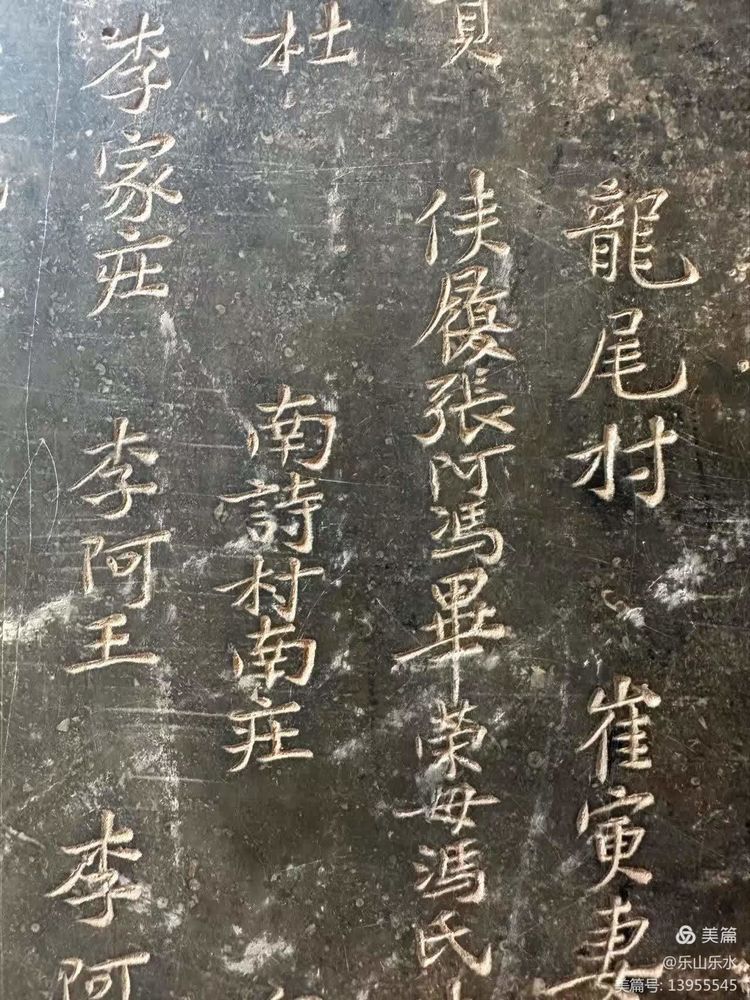 龍尾村 崔寅妻
侯履張阿馮畢荣母馮氏
杜 南詩村南庄
李家庄 李阿王 李阿
美篇
@乐山乐水
美篇号: 13955545